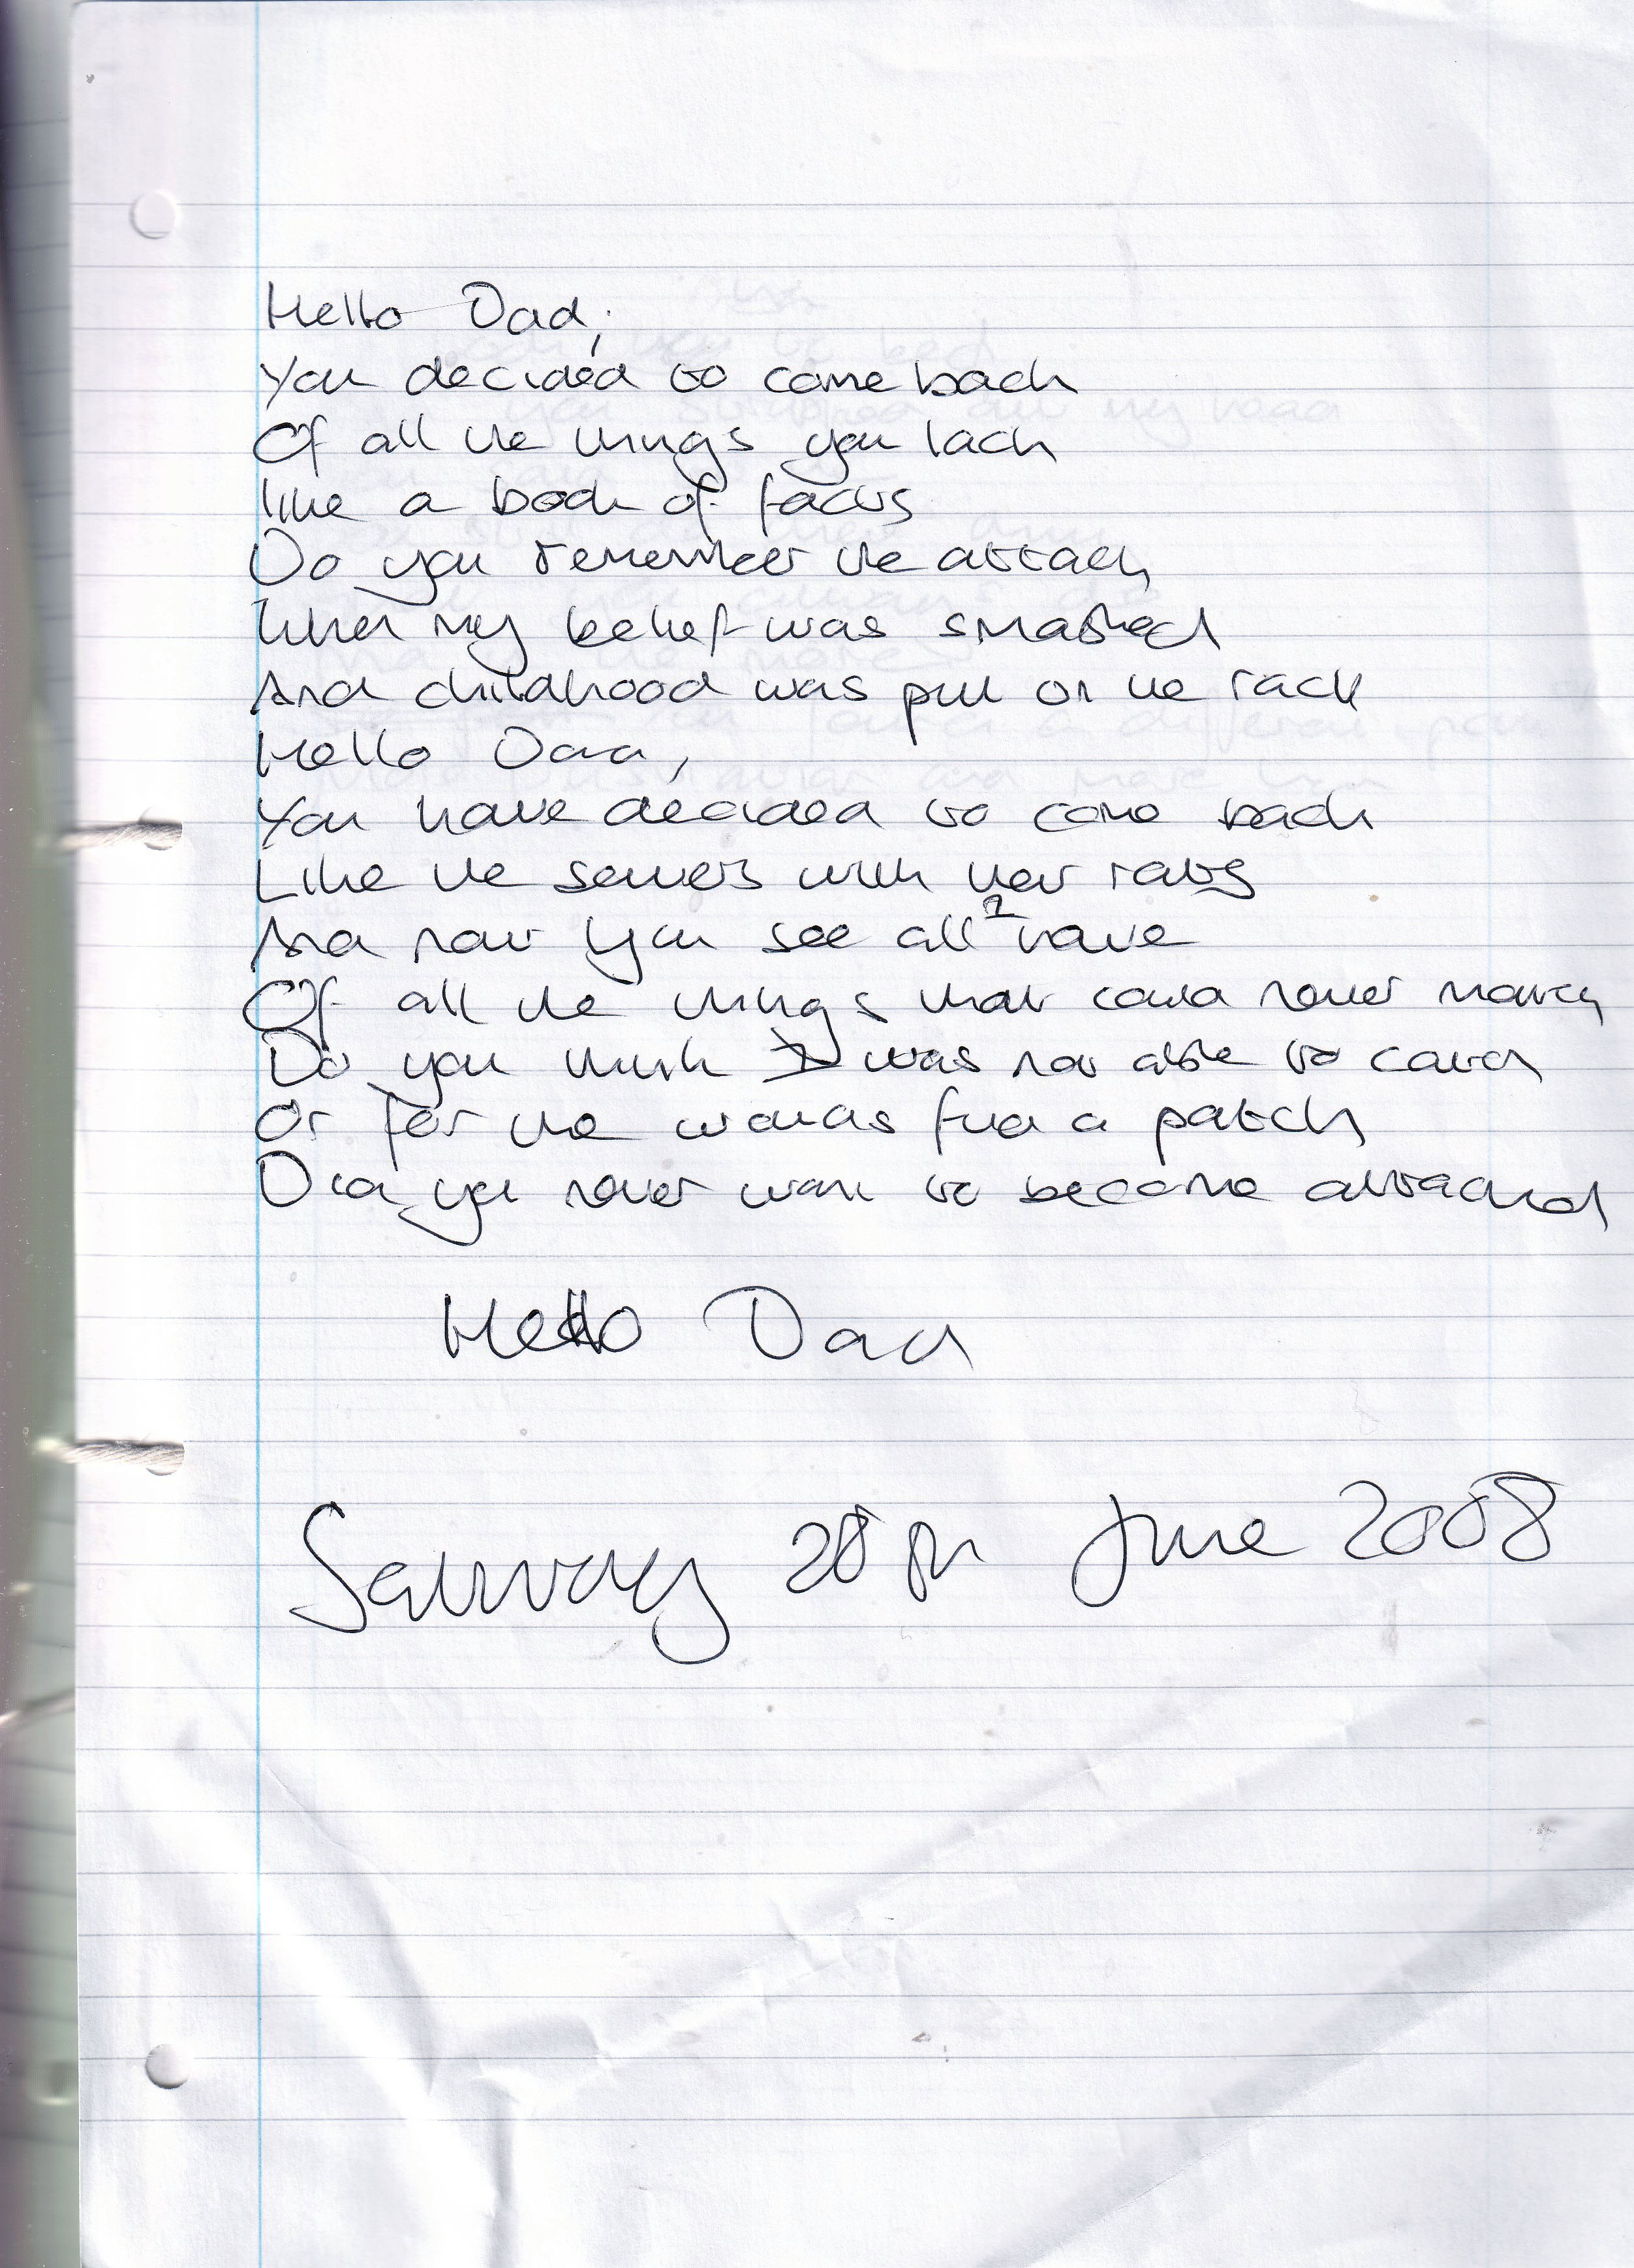 Hello Dad,
You decided to come back
Of all the things you lack
like a book of facts
Do you remember the attack
When my belief was smashed
And childhood was put on the rack
Hello Dad,
You have decided to come back
Like the sewers with their rats
And now you see all I have
Of all the things that could never match
Do you think I was not able to catch
Or for the wounds find a patch
Did you never want to become attached
Hello Dad
Saturday 28th June 2008